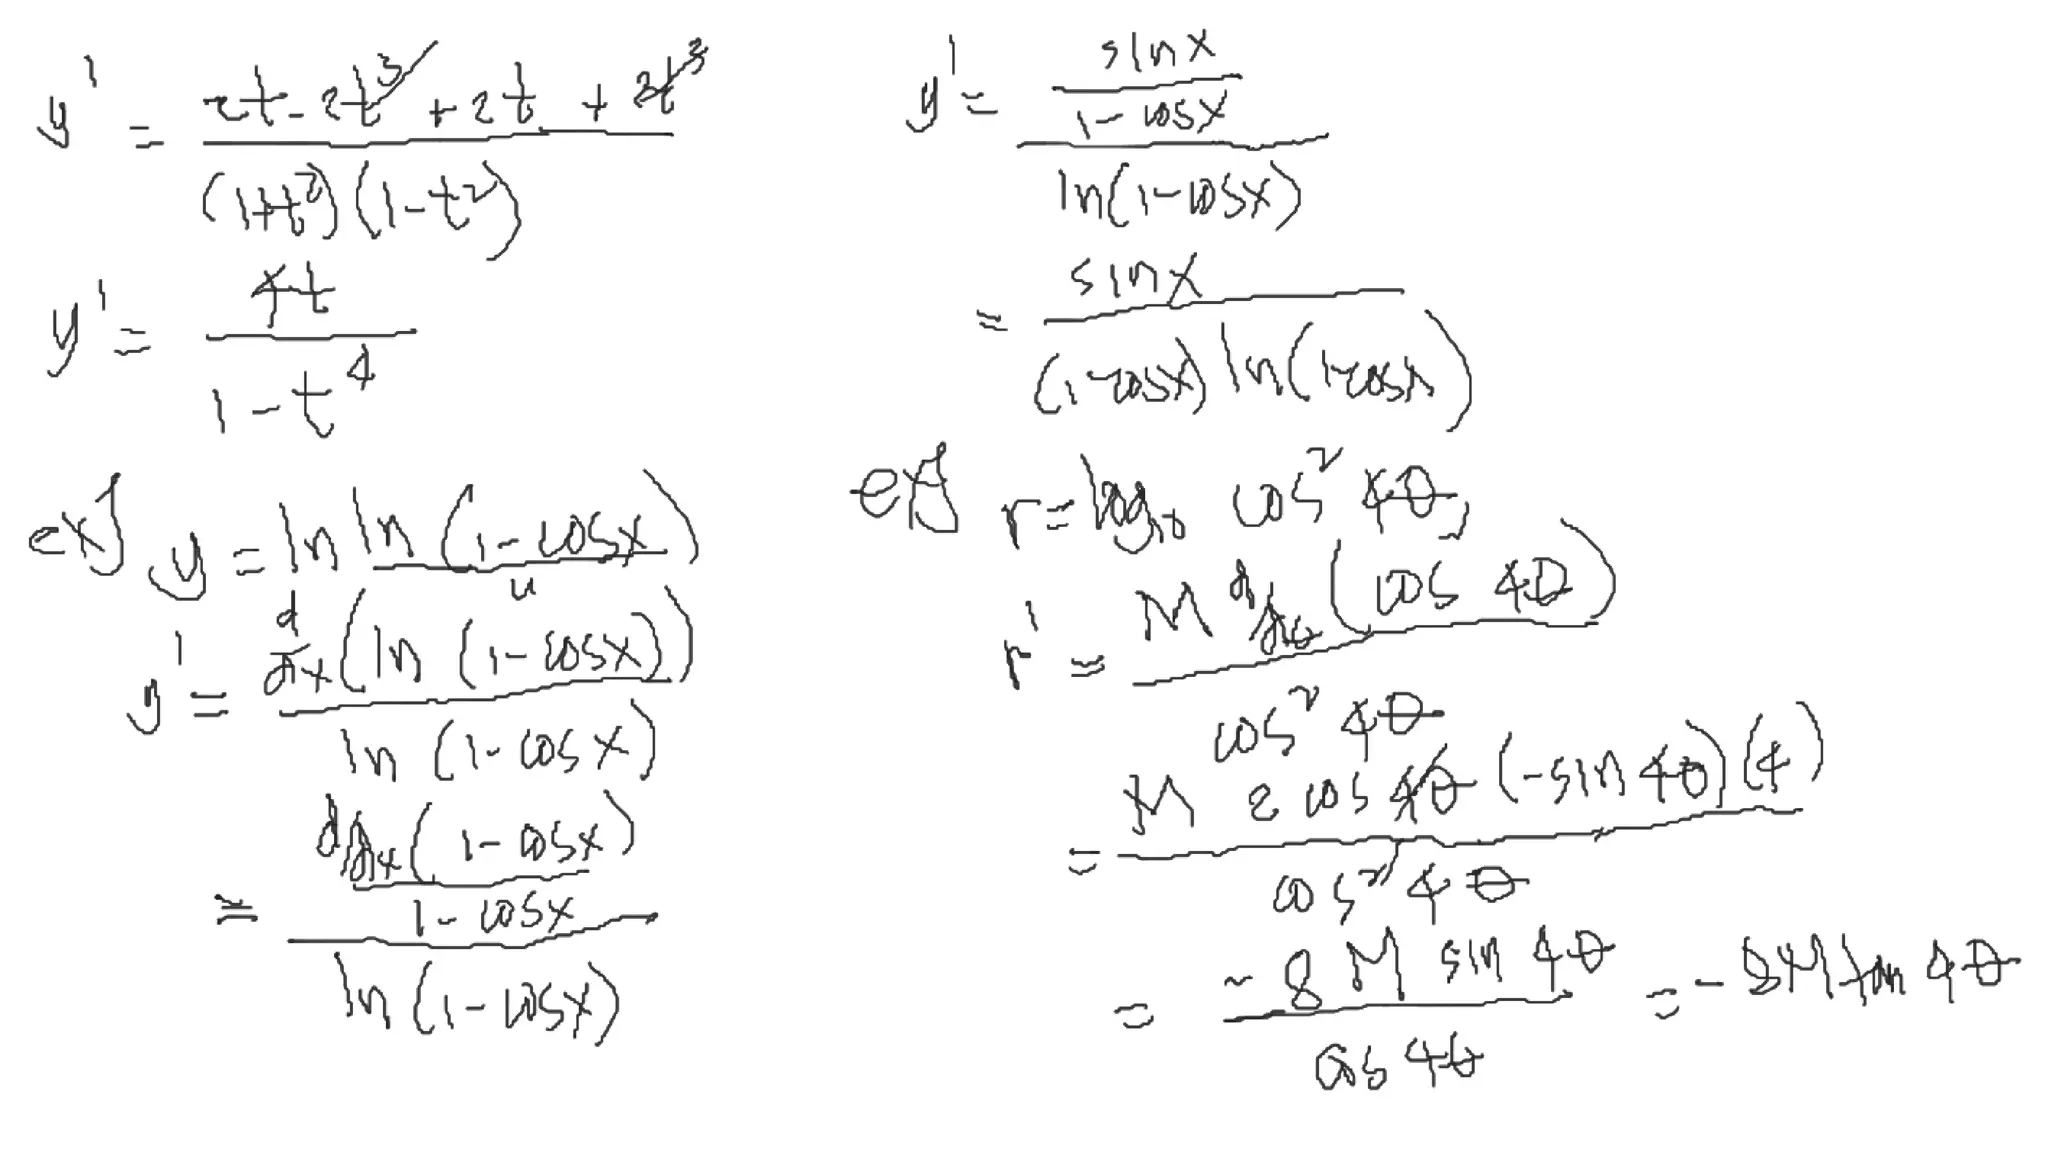 y' = (2t - 2t³ + 2t + 2t³) / ((1+t²)(1-t²))
y' = 4t / (1 - t⁴)
ex] y = ln ln (1 - cosx)
u
y' = d/dx (ln (1 - cosx)) / ln (1 - cosx)
= (d/dx (1 - cosx) / (1 - cosx)) / ln (1 - cosx)
y' = (sinx / (1 - cosx)) / ln(1 - cosx)
= sinx / ((1 - cosx) ln(1 - cosx))
ex] r = log₁₀ cos² 4θ,
r' = M d/dθ (cos 4θ) / cos² 4θ
= M 2 cos 4θ (-sin 4θ)(4) / cos² 4θ
= -8 M sin 4θ / cos 4θ = -8M tan 4θ